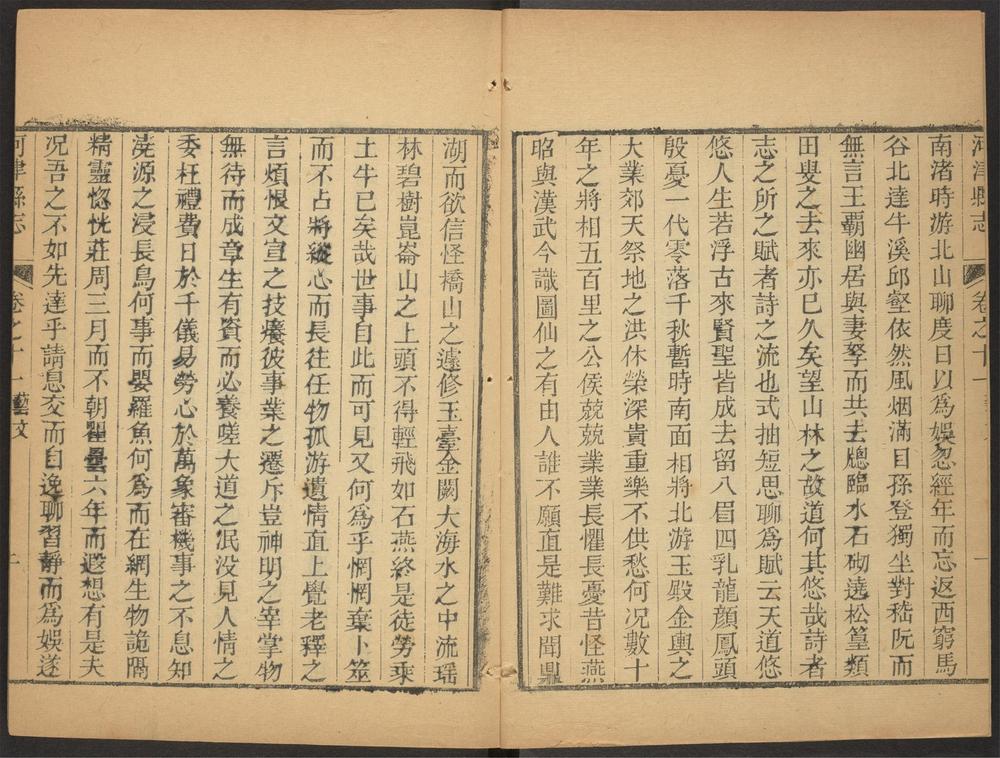 河津縣志 卷之十一
南渚時游北山聊度日以爲娛忽經年而忘返西窮馬
谷北達牛溪邱壑依然風烟滿目孫登獨坐對嵇阮而
無言王霸幽居與妻孥而共去牕臨水石砌遶松篁類
田叟之去來亦已久矣望山林之故道何其悠哉詩者
志之所之賦者詩之流也式抽短思聊爲賦云天道悠
悠人生若浮古來賢聖皆成去留八眉四乳龍顔鳳頭
殷憂一代零落千秋暫時南面相將北游玉殿金輿之
大業郊天祭地之洪休榮深貴重樂不供愁何况數十
年之將相五百里之公侯兢兢業業長懼長憂昔怪燕
昭與漢武今識圖仙之有由人誰不願直是難求聞鼎
湖而欲信怪橋山之遽修玉臺金闕大海水之中流瑶
林碧樹崑崙山之上頭不得輕飛如石燕終是徒勞乘
土牛已矣哉世事自此而可見又何爲乎惘惘棄卜筮
而不占將縱心而長往任物孤游遺情直上覺老釋之
言煩恨文宣之技癢彼事業之遷斥豈神明之宰掌物
無待而成章生有資而必養嗟大道之泯没見人情之
委枉禮費日於千儀易勞心於萬象審機事之不息知
澆源之浸長鳥何事而嬰羅魚何爲而在網生物詭隔
精靈惚恍莊周三月而不朝瞿曇六年而遐想有是夫
况吾之不如先達乎請息交而自逸聊習靜而爲娛遂
河津縣志 卷之十一 藝文